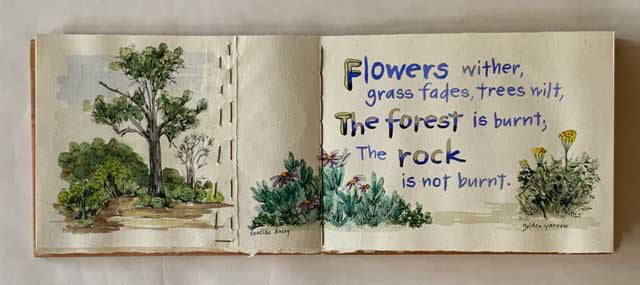 Flowers wither,
grass fades, trees wilt,
The forest is burnt;
The rock
is not burnt.
seaside daisy
golden yarrow